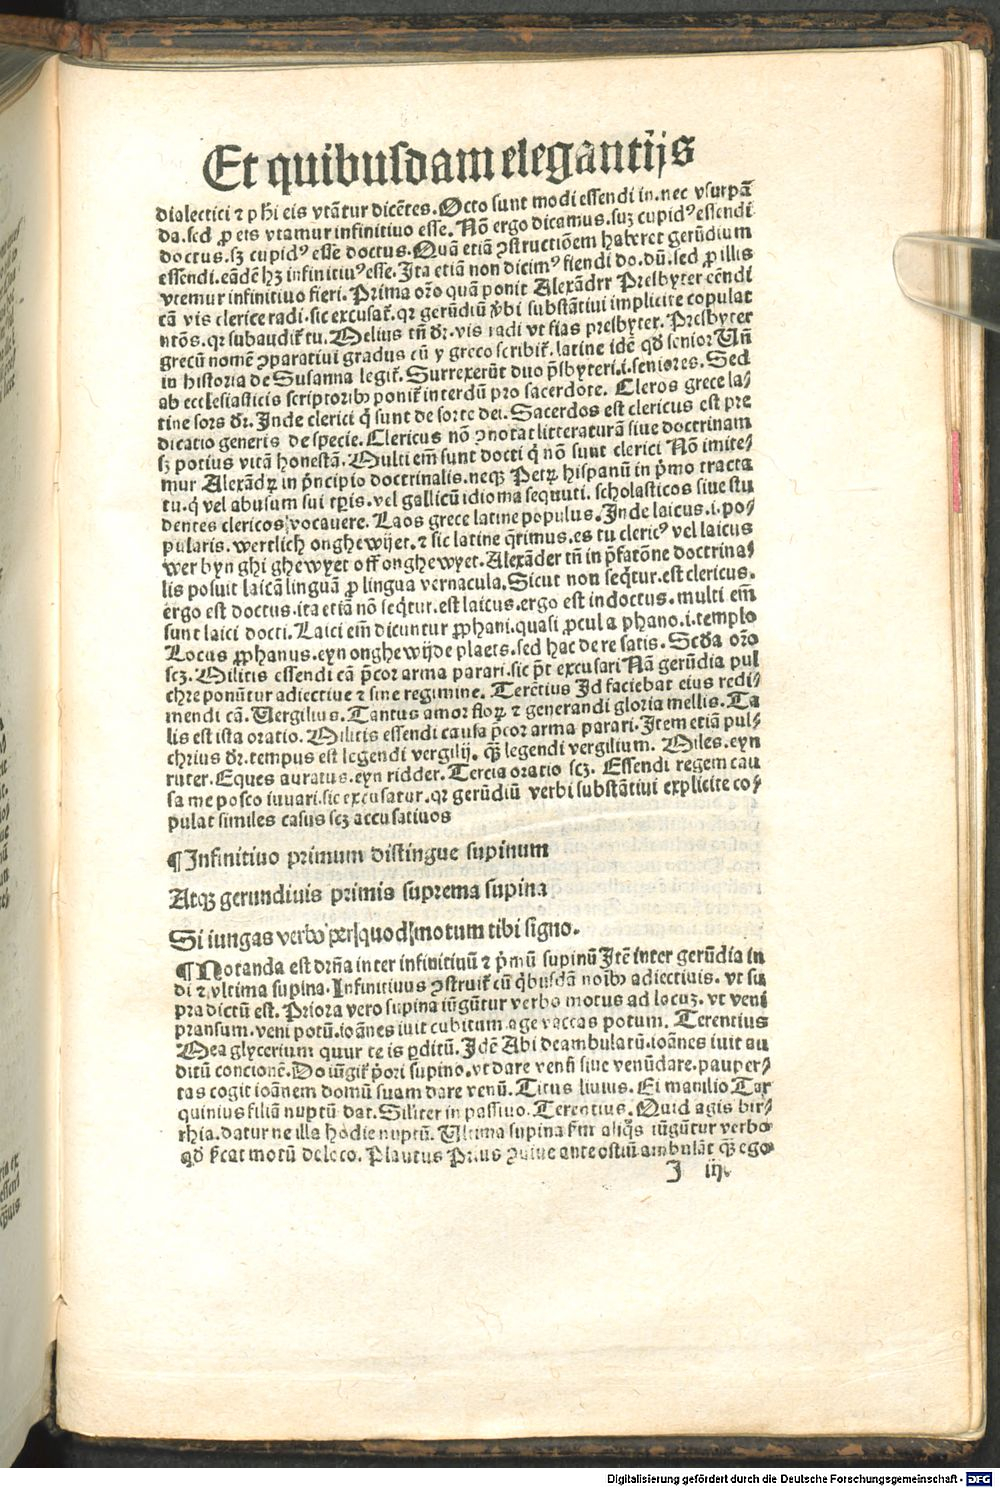 Et quibusdam elegantijs
dialectici ⁊ ph̄i eis vtātur dicētes. Octo sunt modi essendi in. nec vsurpā
da. sed ꝓ eis vtamur infinitiuo esse. Nō ergo dicamus. suꝫ cupidꝰ essendi
doctus. sꝫ cupidꝰ esse doctus. Quā etiā ↄstructiōem haberet gerūdium
essendi. eādē hꝫ infinitiuꝰ esse. Ita etiā non dicimꝰ fiendi do. dū. sed ꝓ illis
vtemur infinitiuo fieri. Prima orō quā ponit Alexādrr Presbyter cēndi
cā vis clerice radi. sic excusat᷑. qr gerūdiū v̄bi substātiui implicite copulat
ntōs. qr subaudit᷑ tu. Melius tn̄ dr̄. vis radi vt fias presbyter. Presbyter
grecū nomē ↄparatiui gradus cū y greco scribit᷑. latine idē qd̄ senior Un̄
in historia de Susanna legit᷑. Surrexerūt duo p̄sbyteri .i. seniores. Sed
ab ecclesiasticis scriptoribꝫ ponit᷑ interdū pro sacerdote. Cleros grece la⸗
tine sors dr̄. Inde clerici q̄ sunt de sorte dei. Sacerdos est clericus est pre
dicatio generis de specie. Clericus nō ↄnotat litteraturā siue doctrinam
sꝫ potius vitā honestā. Multi em̄ sunt docti q̄ nō sunt clerici Nō imite⸗
mur Alexādꝝ in p̄ncipio doctrinalis. neqꝫ Petꝝ hispanū in p̄mo tracta
tu. q̄ vel abusum sui tp̄is. vel gallicū idioma sequuti. scholasticos siue stu
dentes clericos vocauere. Laos grece latine populus. Inde laicus .i. po⸗
pularis. wertlich onghewijet. ⁊ sic latine q̄rimus. es tu clericꝰ vel laicus
wer byn ghi ghewyet off onghewyet. Alexāder tn̄ in p̄fatōne doctrina⸗
lis posuit laicā linguā ꝓ lingua vernacula. Sicut non seq̄tur. est clericus.
ergo est doctus. ita etiā nō seq̄tur. est laicus. ergo est indoctus. multi em̄
sunt laici docti. Laici em̄ dicuntur ꝓphani. quasi ꝓcul a phano .i. templo
Locus ꝓphanus. eyn onghewijde plaets. sed hac de re satis. Scd̄a orō
scꝫ. Militis essendi cā p̄cor arma parari. sic p̄t excusari Nā gerūdia pul
chre ponūtur adiectiue ⁊ sine regimine. Terētius Id faciebat eius redi⸗
mendi cā. Vergilius. Tantus amor floꝝ ⁊ generandi gloria mellis. Ta
lis est ista oratio. Militis essendi causa p̄cor arma parari. Item etiā pul⸗
chrius dr̄. tempus est legendi vergilij. qꝫ̄ legendi vergilium. Miles. eyn
ruter. Eques auratus. eyn ridder. Tercia oratio scꝫ. Essendi regem cau
sa me posco iuuari. sic excusatur. qr gerūdiū verbi substātiui explicite co⸗
pulat similes casus scꝫ accusatiuos
¶ Infinitiuo primum distingue supinum
Atqꝫ gerundiuis primis suprema supina
Si iungas verbo per quod motum tibi signo.
¶ Notanda est dr̄ña inter infinitiuū ⁊ p̄mū supinū Itē inter gerūdia in
di ⁊ vltima supina. Infinitiuus ↄstruit᷑ cū q̄busdā noībꝫ adiectiuis. vt su
pra dictū est. Priora vero supina iūgūtur verbo motus ad locuꝫ. vt veni
pransum. veni potū. ioānes iuit cubitum. age vaccas potum. Terentius
Mea glycerium quur te is ꝑditū. Idē Abi deambulatū. ioānes iuit au
ditū concionē. Do iūgit᷑ p̄ori supino. vt dare venū siue venūdare. pauper⸗
tas cogit ioānem domū suam dare venū. Titus liuius. Ei manilio Tar
quinius filiā nuptū dat. Siliter in passiuo. Terentius. Quid agis bir⸗
rhia. datur ne illa hodie nuptū. Ultima supina sm̄ aliq̄s iūgūtur verbo
qd̄ s̄cat motū de loco. Plautus Prius ante ostiū ambulāt qꝫ̄ ego
I iij.
Digitalisierung gefördert durch die Deutsche Forschungsgemeinschaft - DFG